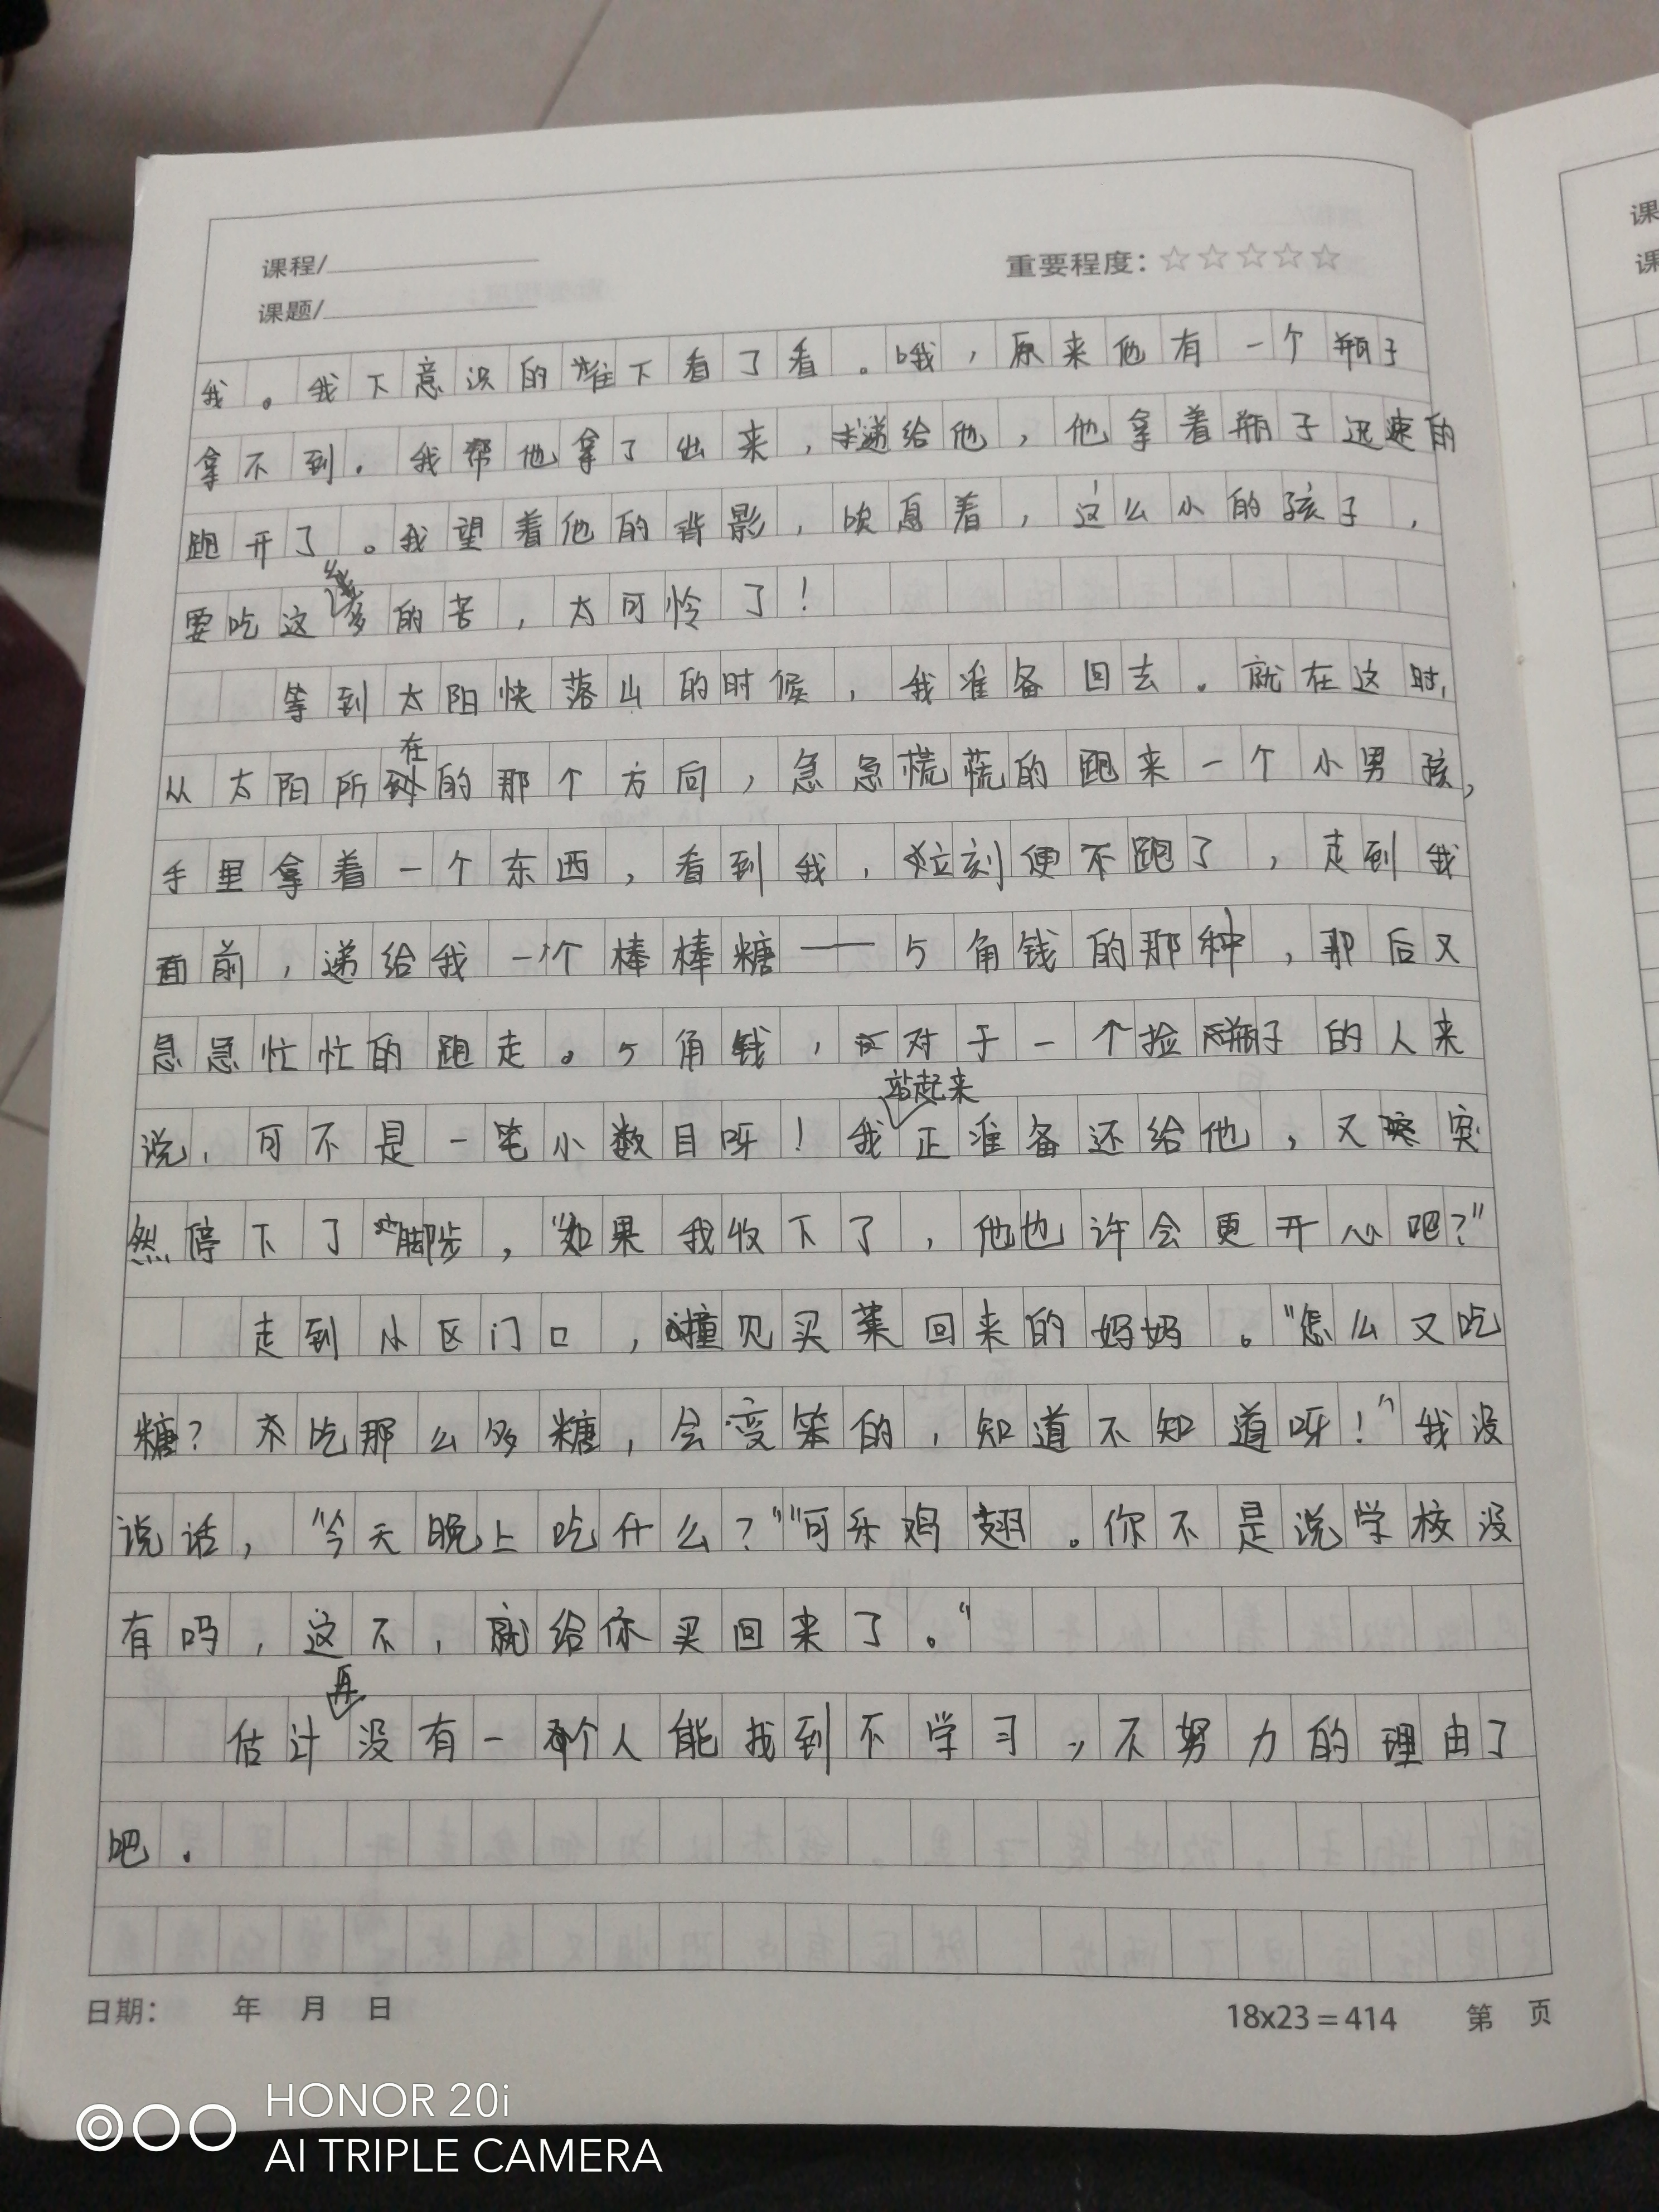 课程/
重要程度：☆☆☆☆☆
课题/
我。我下意识的往下看了看。哦，原来他有一个瓶子
拿不到。我帮他拿了出来，递给他，他拿着瓶子迅速的
跑开了。我望着他的背影，叹息着，这么小的孩子，
要吃这么多的苦，太可怜了！
等到太阳快落山的时候，我准备回去。就在这时，
从太阳所在的那个方向，急急慌慌的跑来一个小男孩，
手里拿着一个东西，看到我，立刻便不跑了，走到我
面前，递给我一个棒棒糖——5角钱的那种，那后又
急急忙忙的跑走。5角钱，对于一个捡瓶子的人来
说，可不是一笔小数目呀！我站起来正准备还给他，又突
然停下了脚步，“如果我收下了，他也许会更开心吧？”
走到小区门口，撞见买菜回来的妈妈。“怎么又吃
糖？不吃那么多糖，会变笨的，知道不知道呀！”我没
说话，“今天晚上吃什么？”“可乐鸡翅。你不是说学校没
有吗，这不，就给你买回来了。”
估计再没有一个人能找到不学习，不努力的理由了
吧。
日期： 年 月 日
18x23=414 第 页
HONOR 20i
AI TRIPLE CAMERA
课
课